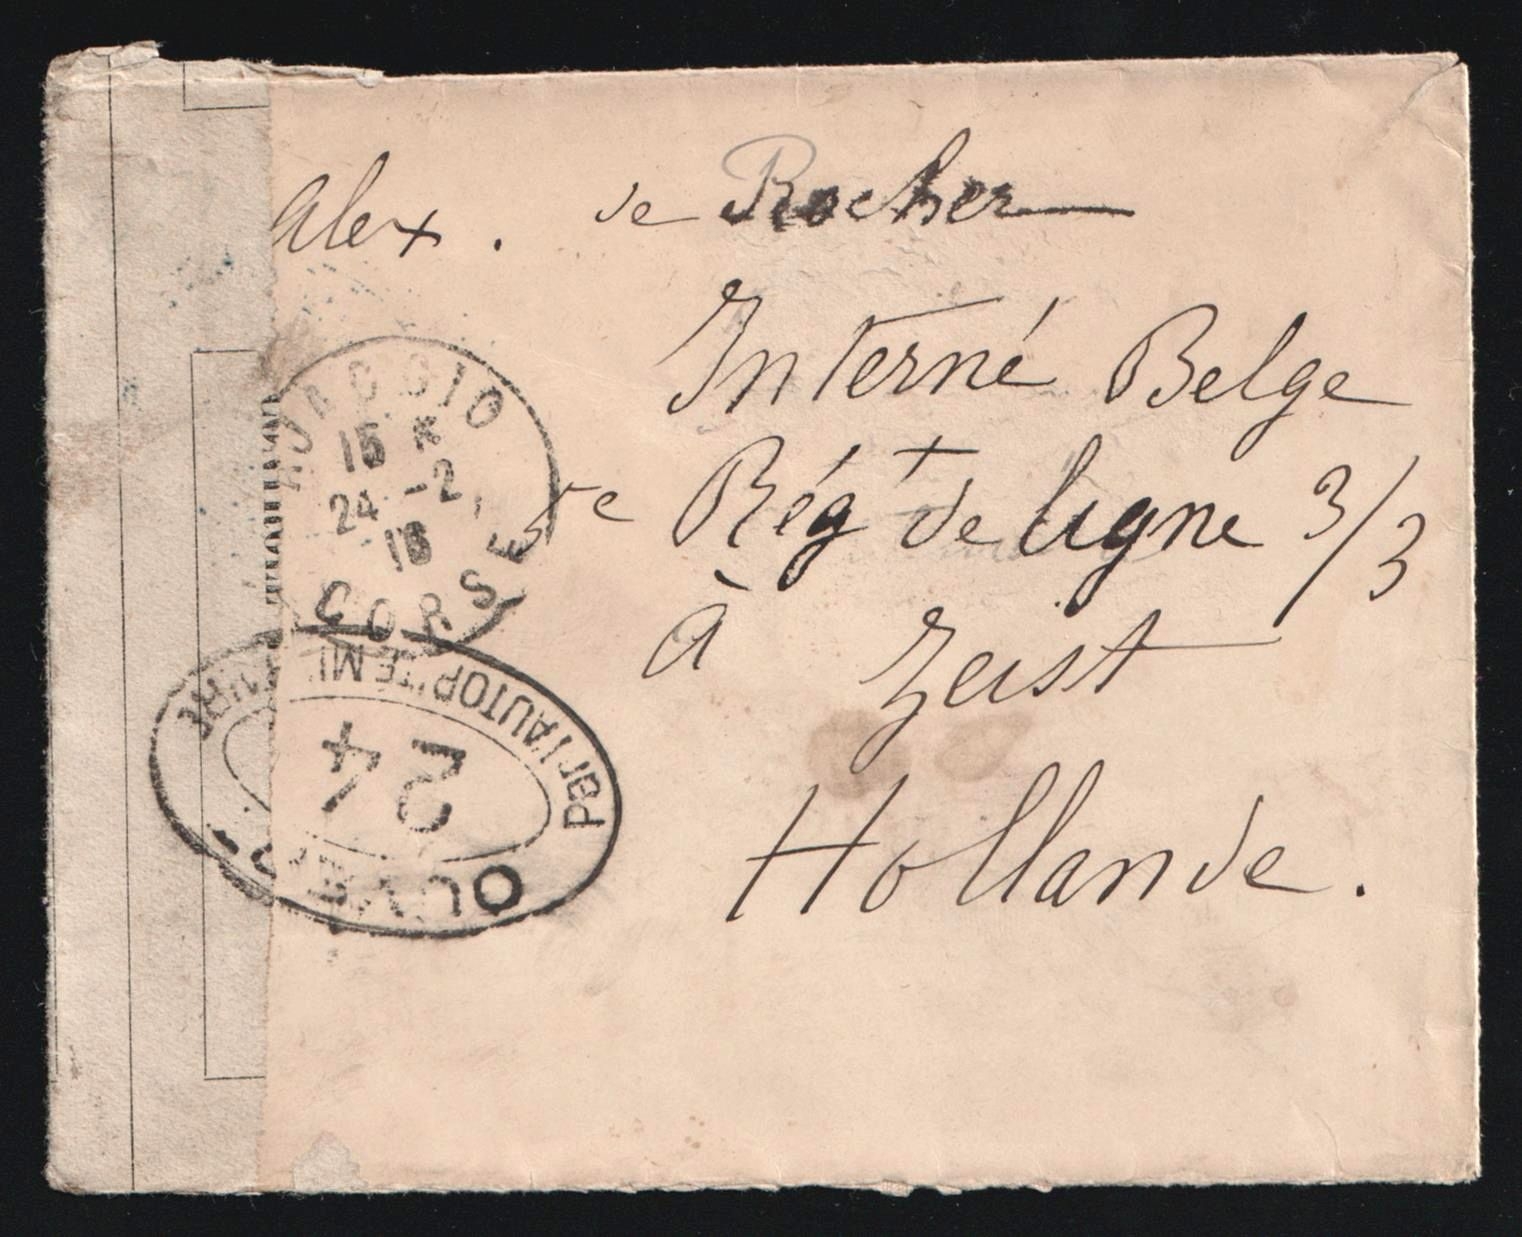 Alex. de Rocher
Interné Belge
Rég t de ligne 3/3
à Zeist
Hollande.
AJACCIO
15 *
24 -2
18
CORSE
Par l'AUTORITÉ MILITAIRE
24
OUVERT